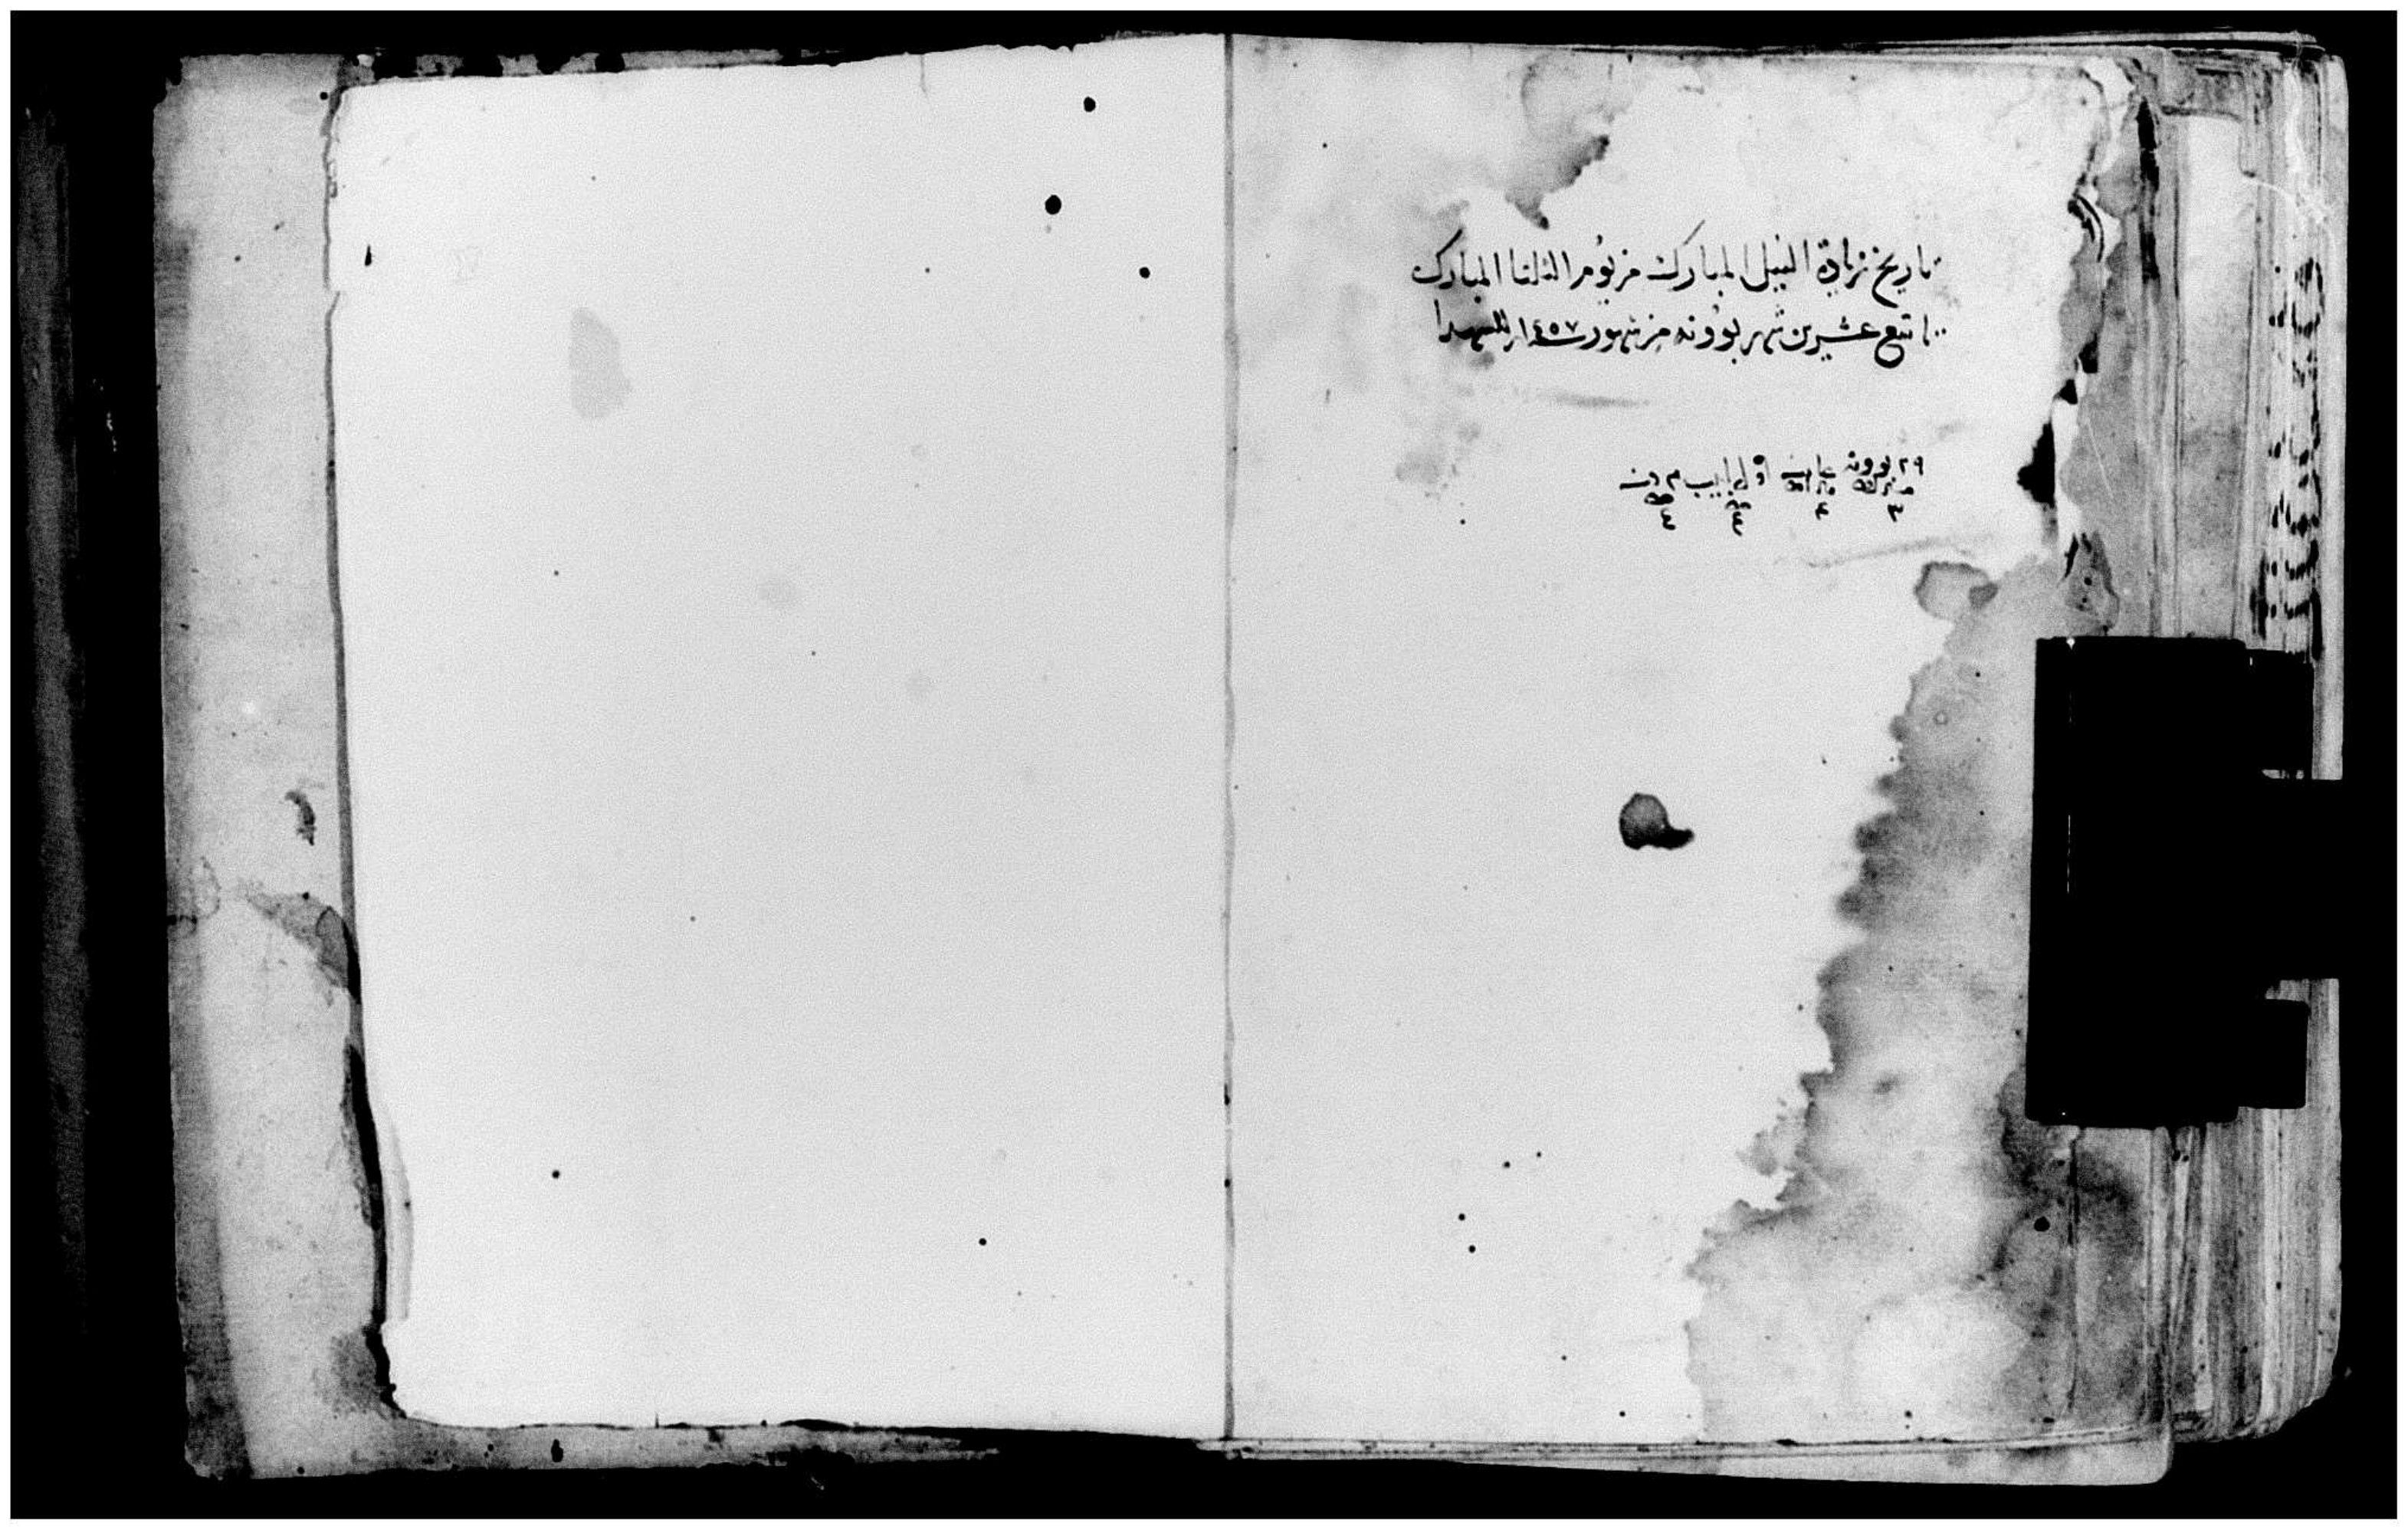 تاريخ زيادة النيل المبارك من يوم الثلثا المبارك
تاسع عشرين شهر بوونه من شهور سنة ١٤٥٧ للشهدا
٢٩ بوونه اول ابيب
٣ ٤ ٤ ٤